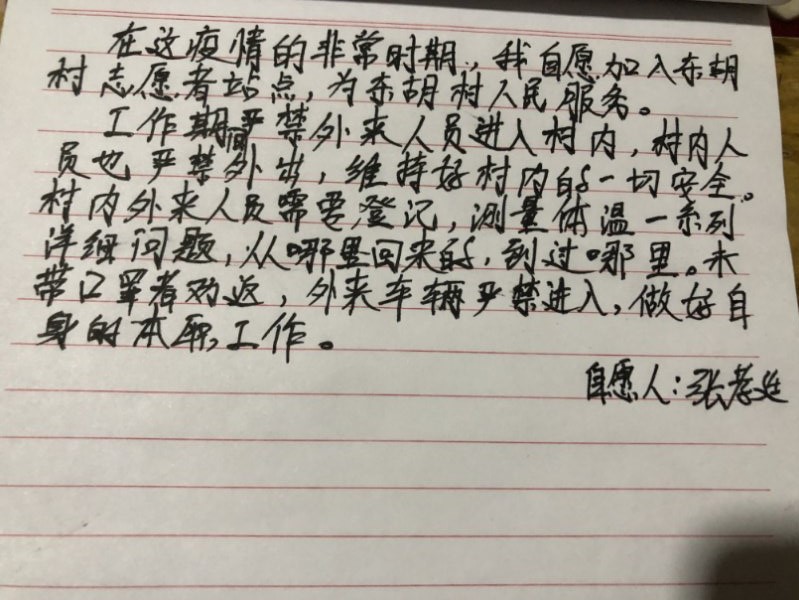 在这疫情的非常时期,我自愿加入东胡
村志愿者站点,为东胡村人民服务。
工作期间严禁外来人员进入村内,村内人
员也严禁外出,维持好村内的一切安全。
村内外来人员需要登记,测量体温一系列
详细问题,从哪里回来的,到过哪里。未
带口罩者劝返,外来车辆严禁进入,做好自
身的本职工作。
自愿人:张孝廷